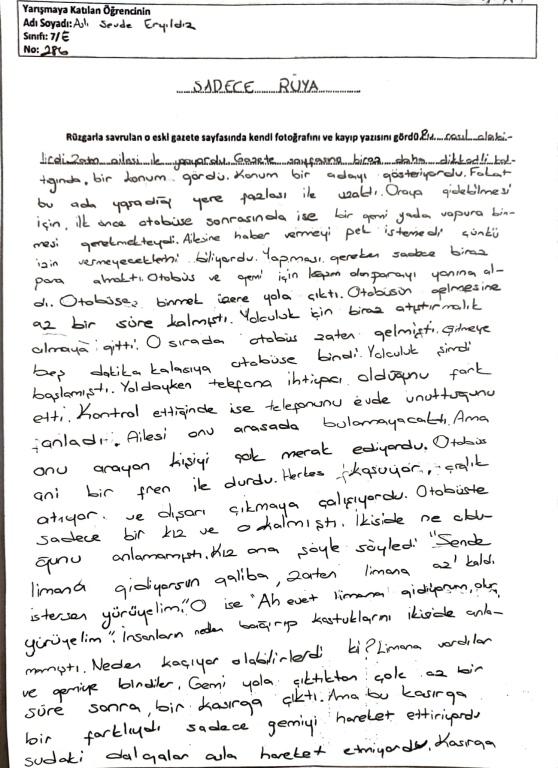 Yarışmaya Katılan Öğrencinin
Adı Soyadı: Aslı Sevde Eryıldız
Sınıfı: 7/E
No: 286
SADECE RÜYA
Rüzgarla savrulan o eski gazete sayfasında kendi fotoğrafını ve kayıp yazısını gördü. Bu nasıl olabi-
lirdi zaten ailesi ile yaşıyordu. Gazete sayfasına biraz daha dikkatli bak-
tığında, bir konum gördü. Konum bir adayı gösteriyordu. Fakat
bu ada yaşadığı yere fazlası ile uzaktı. Oraya gidebilmesi
için, ilk önce otobüse sonrasında ise bir gemi yada vapura bin-
mesi gerekmekteydi. Ailesine haber vermeyi pek istemedi çünkü
izin vermeyeceklerini biliyordu. Yapması gereken sadece biraz
para almaktı. Otobüs ve gemi için parayı yanına al-
dı. Otobüse binmek üzere yola çıktı. Otobüsün gelmesine
az bir süre kalmıştı. Yolculuk için biraz atıştırmalık
almaya gitti. O sırada otobüs zaten gelmişti. Gitmeye
beş dakika kalasıya otobüse bindi. Yolculuk şimdi
başlamıştı. Yoldayken telefona ihtiyacı olduğunu fark
etti. Kontrol ettiğinde ise telefonunu evde unuttuğunu
anladı. Ailesi onu arasada bulamayacaktı. Ama
onu arayan kişiyi çok merak ediyordu. Otobüs
ani bir fren ile durdu. Herkes kaşuyor, çıalık
atıyor ve dışarı çıkmaya çalışıyordu. Otobüste
sadece bir kız ve o kalmıştı. İkiside ne oldu-
ğunu anlamamıştı. Kız ona şöyle söyledi "Sende
limana gidiyorsun galiba, zaten limana az kaldı
istersen yürüyelim." O ise "Ah evet limana gidiyorum, olur
yürüyelim". İnsanların neden bağırıp kaştuklarını ikiside anla-
mamıştı. Neden kaçıyor olabilirlerdi ki? Limana vardılar
ve gemiye bindiler. Gemi yola çıktıktan çok az bir
süre sonra, bir kasırga çıktı. Ama bu kasırga
bir farklıydı sadece gemiyi hareket ettiriyordu
sudaki dalgalar asla hareket etmiyordu. Kasırga